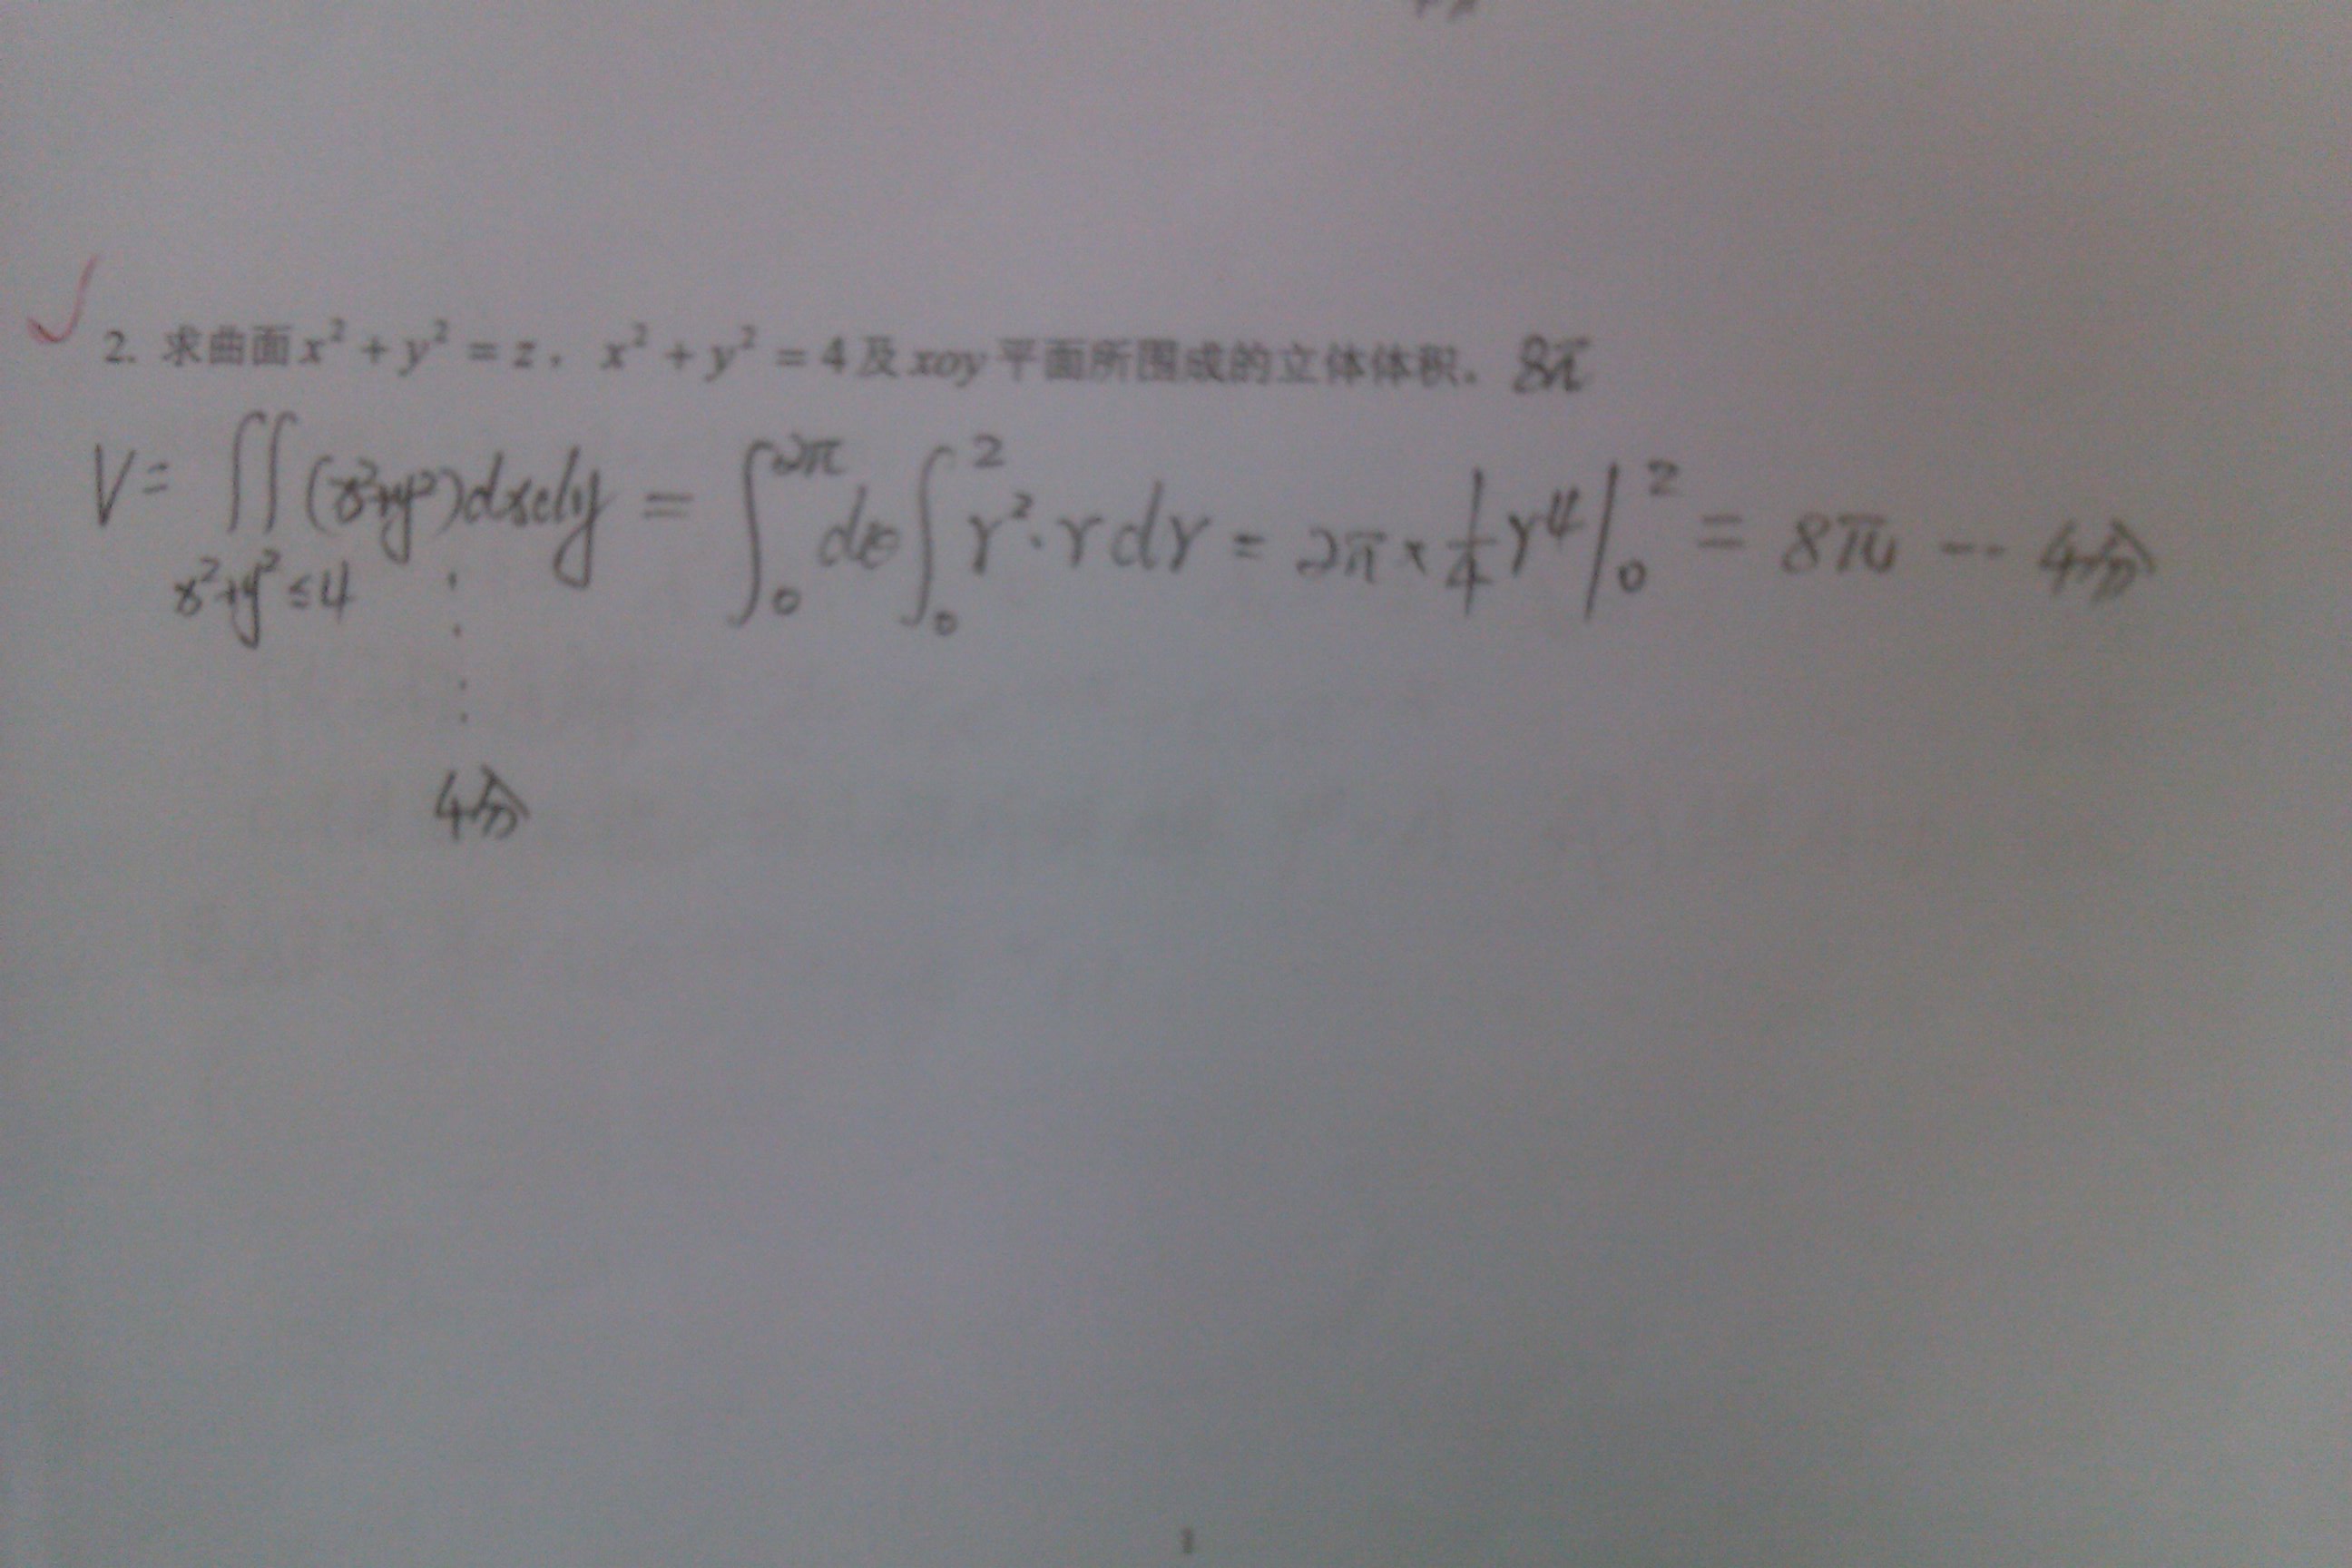 2. 求曲面 x² + y² = z，x² + y² = 4 及 xoy 平面所围成的立体体积。 8π
V = ∬_{x²+y²≤4} (x²+y²)dxdy = ∫₀^{2π} dθ ∫₀² r²·r dr = 2π × 1/4 r⁴ |₀² = 8π --- 4分
4分